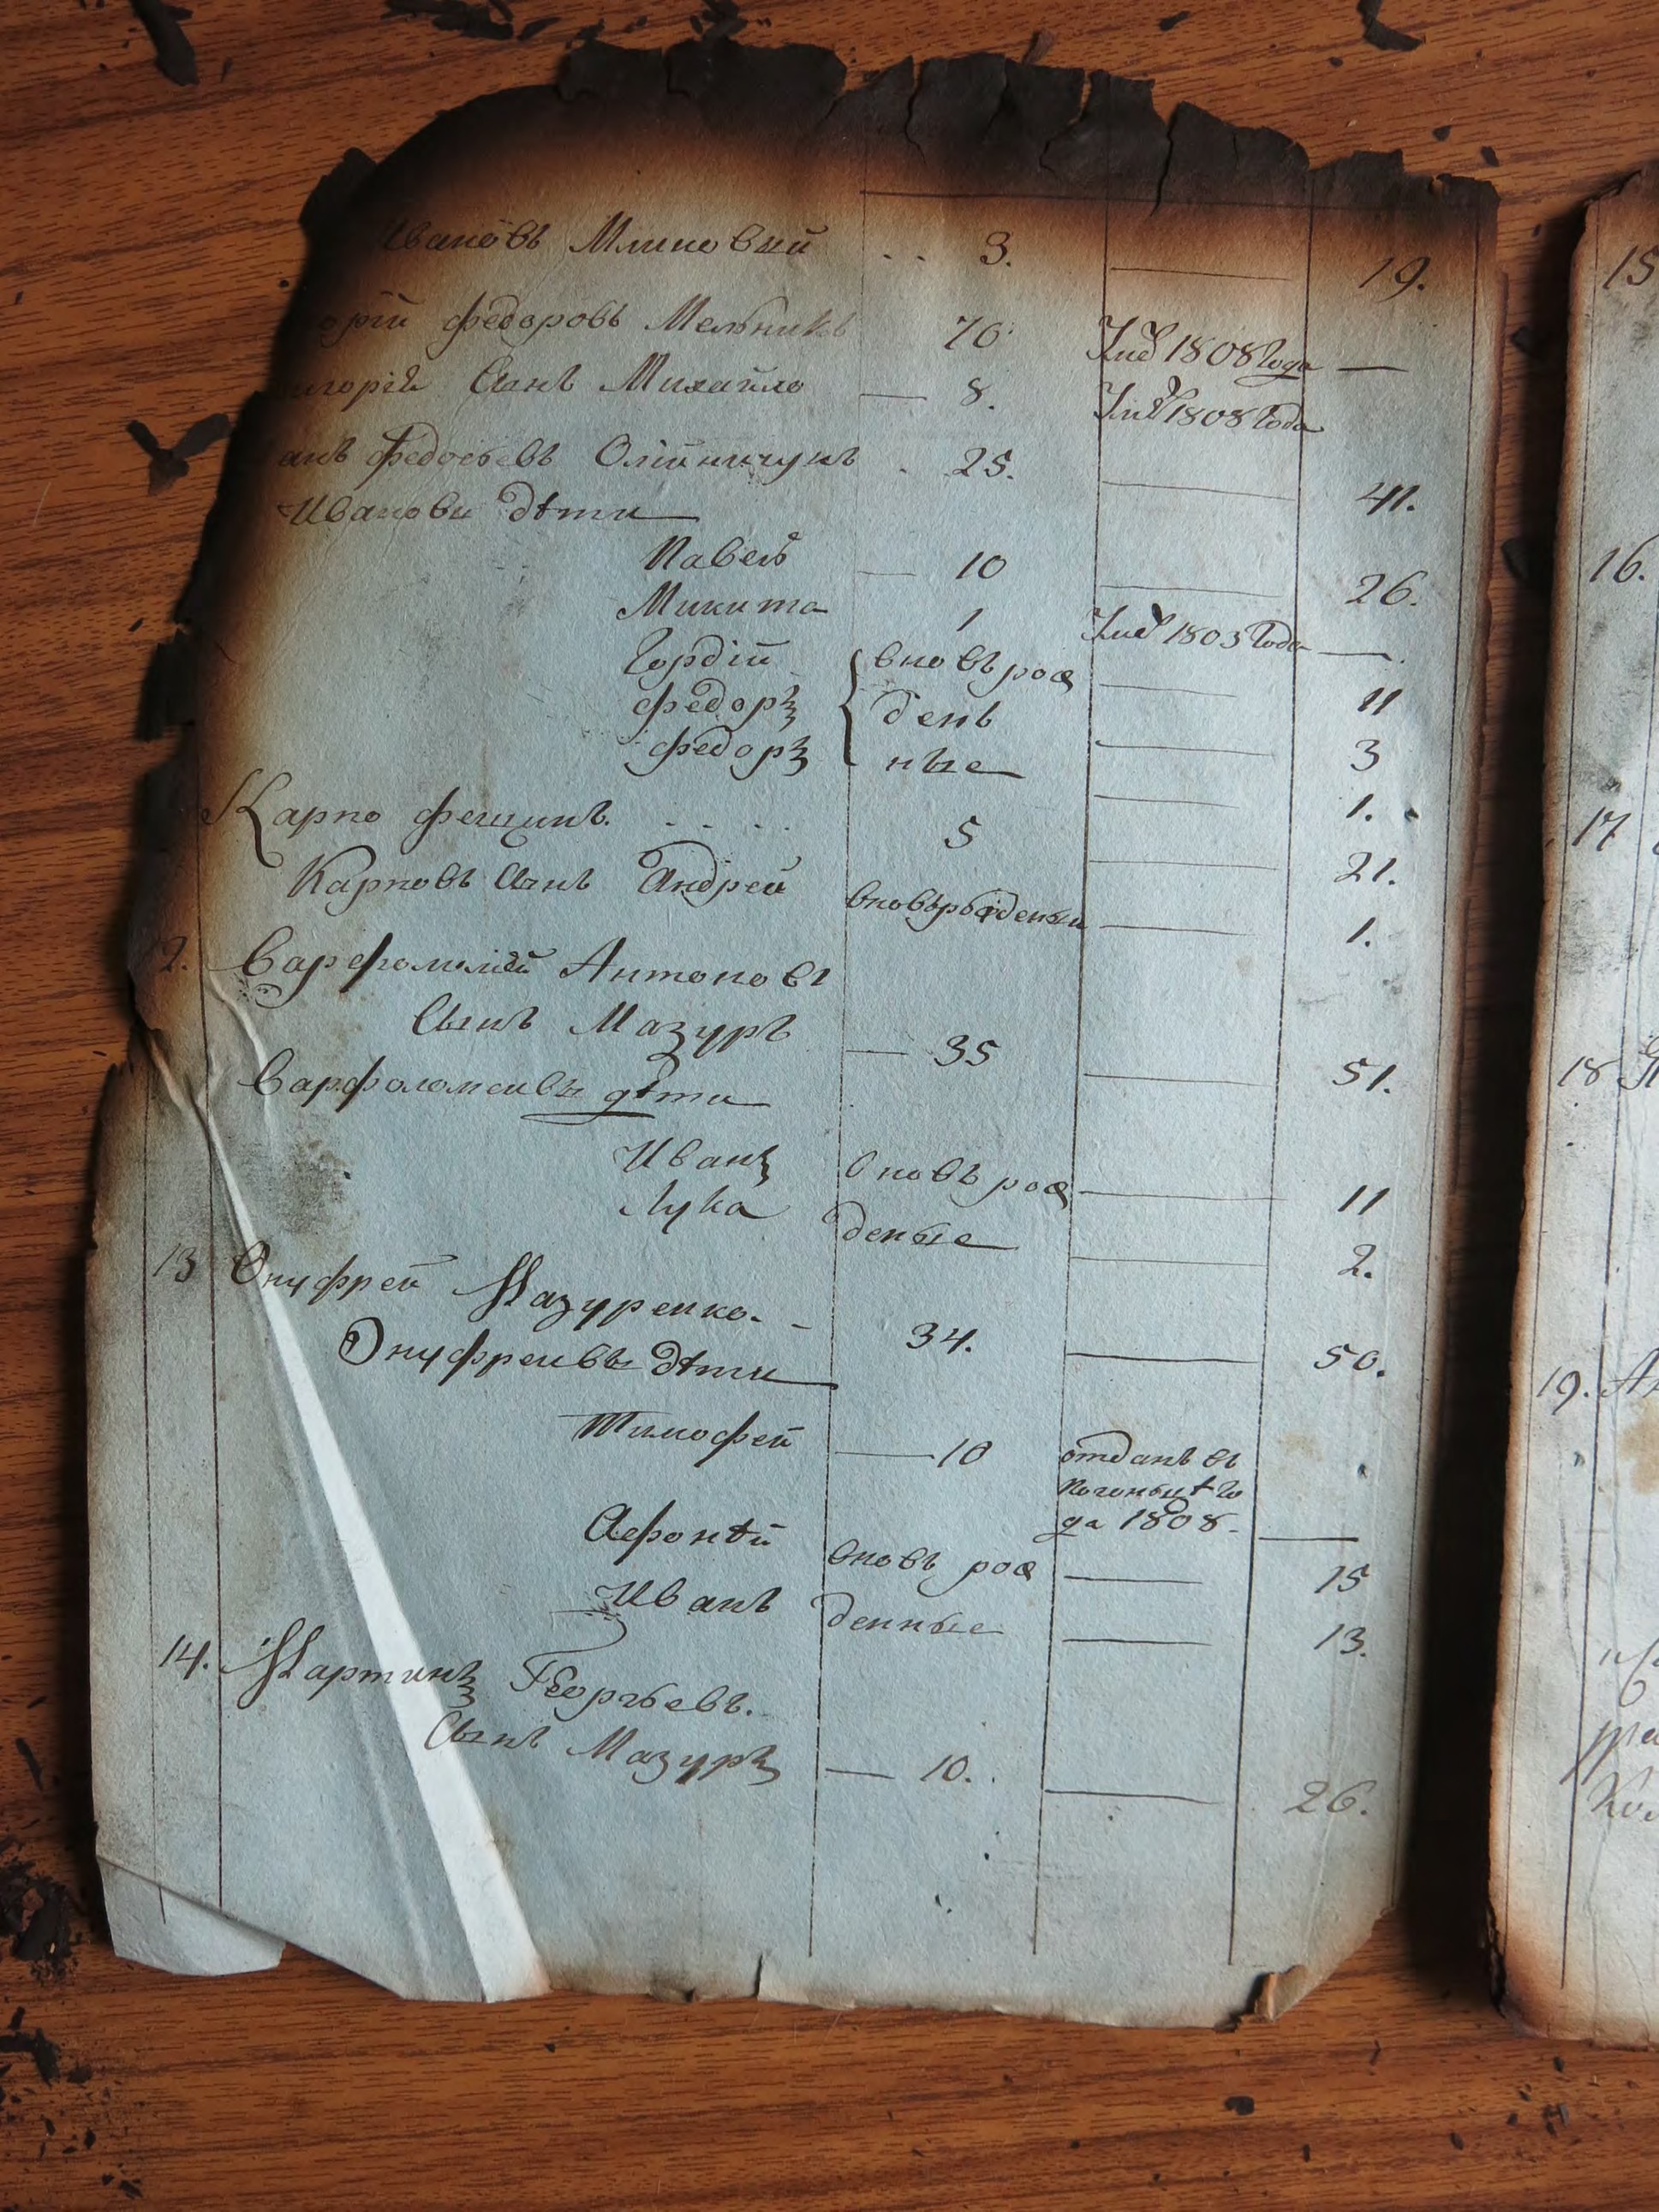 Ивановъ Млиновый . . 3. 19.
орій Федоровъ Мельникъ 70 Умѣ 1808 Года
игорія Сынъ Михайло 8. Умѣ 1808 Года
анъ Федосѣевъ Олійничукъ . 25. 41.
Ивановы дѣти
Павелъ 10 26.
Микита 1 Уме 1803 Года
Гордій вновь рож 11
Федоръ ден 3
Федоръ ные 1.
Карпо Фещинъ . . . . 5 21.
Карповъ Сынъ Андрей вновьрожденый 1.
2. Варфоломій Антоновъ
Сынъ Мазуръ 35 51.
Варфоломеивы дѣти
Иванъ вновь рож 11
Лука деные 2.
13 Онуфрей Мазуренко. 34. 50.
Онуфреивы дѣти
Тимофей 10 отданъ въ
го
да 1808.
Афонѣй вновь рож 15
Иванъ денные 13.
14. Мартинъ Георгьевъ.
Сынъ Мазуръ 10. 26.
15
16.
17
18
19.